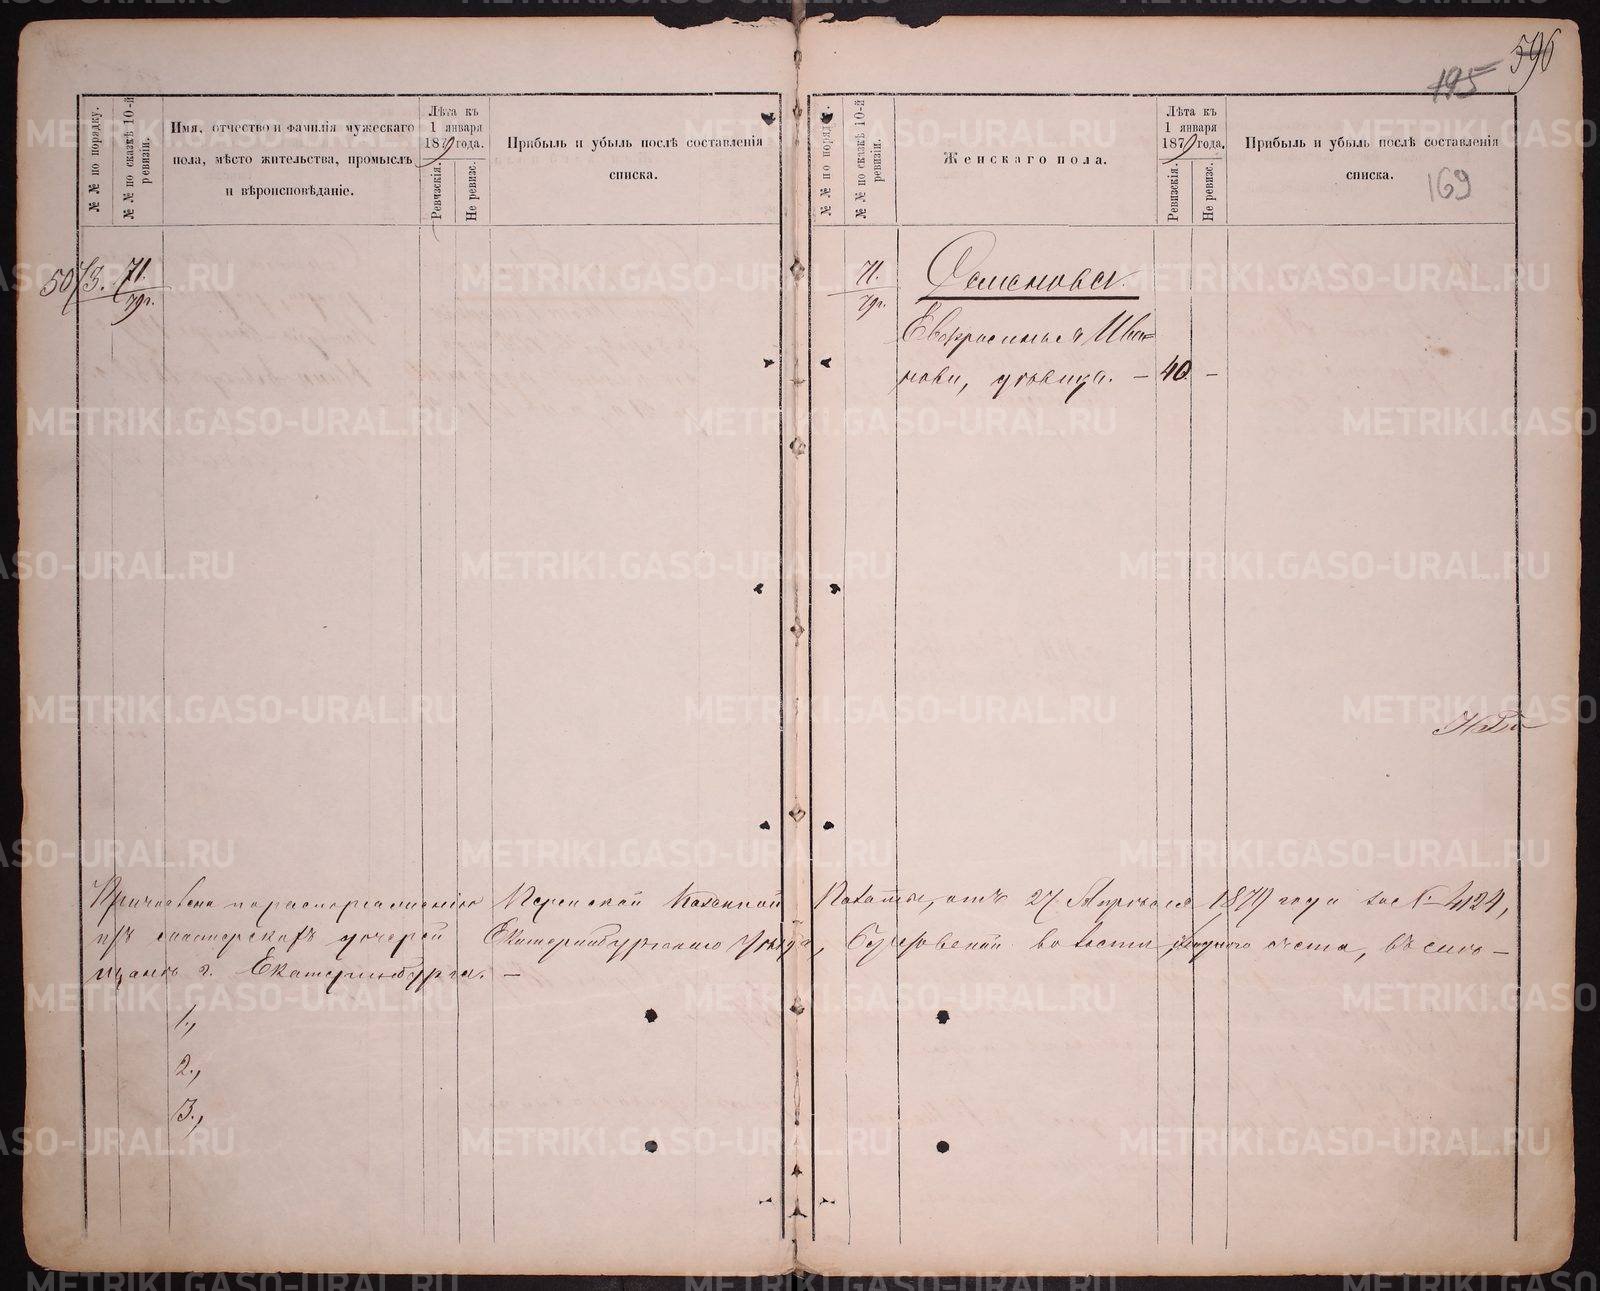 596
195
169
№ № по порядку.
№ № по сказкѣ 10-й ревизіи.
Имя, отчество и фамилія мужескаго
пола, мѣсто жительства, промыслъ
и вѣроисповѣданіе.
Лѣта къ
1 января
1879 года.
Ревизскія.
Не ревизс.
Прибыль и убыль послѣ составленія
списка.
№ № по порядку.
№ № по сказкѣ 10-й ревизіи.
Женскаго пола.
Лѣта къ
1 января
1879 года.
Ревизскія.
Не ревизс.
Прибыль и убыль послѣ составленія
списка.
5073. 71.
79 г.
71.
79 г.
Семенова.
Евфросинья Ива=
нова, дѣвица. — 40 —
Причислена по распоряженію Пермской Казенной Палаты, отъ 27 Апрѣля 1879 года за № 4124,
изъ дочерей Екатеринбургскаго Уѣзда, волости, въ
г. Екатеринбурга. —
1.,
2.,
3.,
METRIKI.GASO-URAL.RU